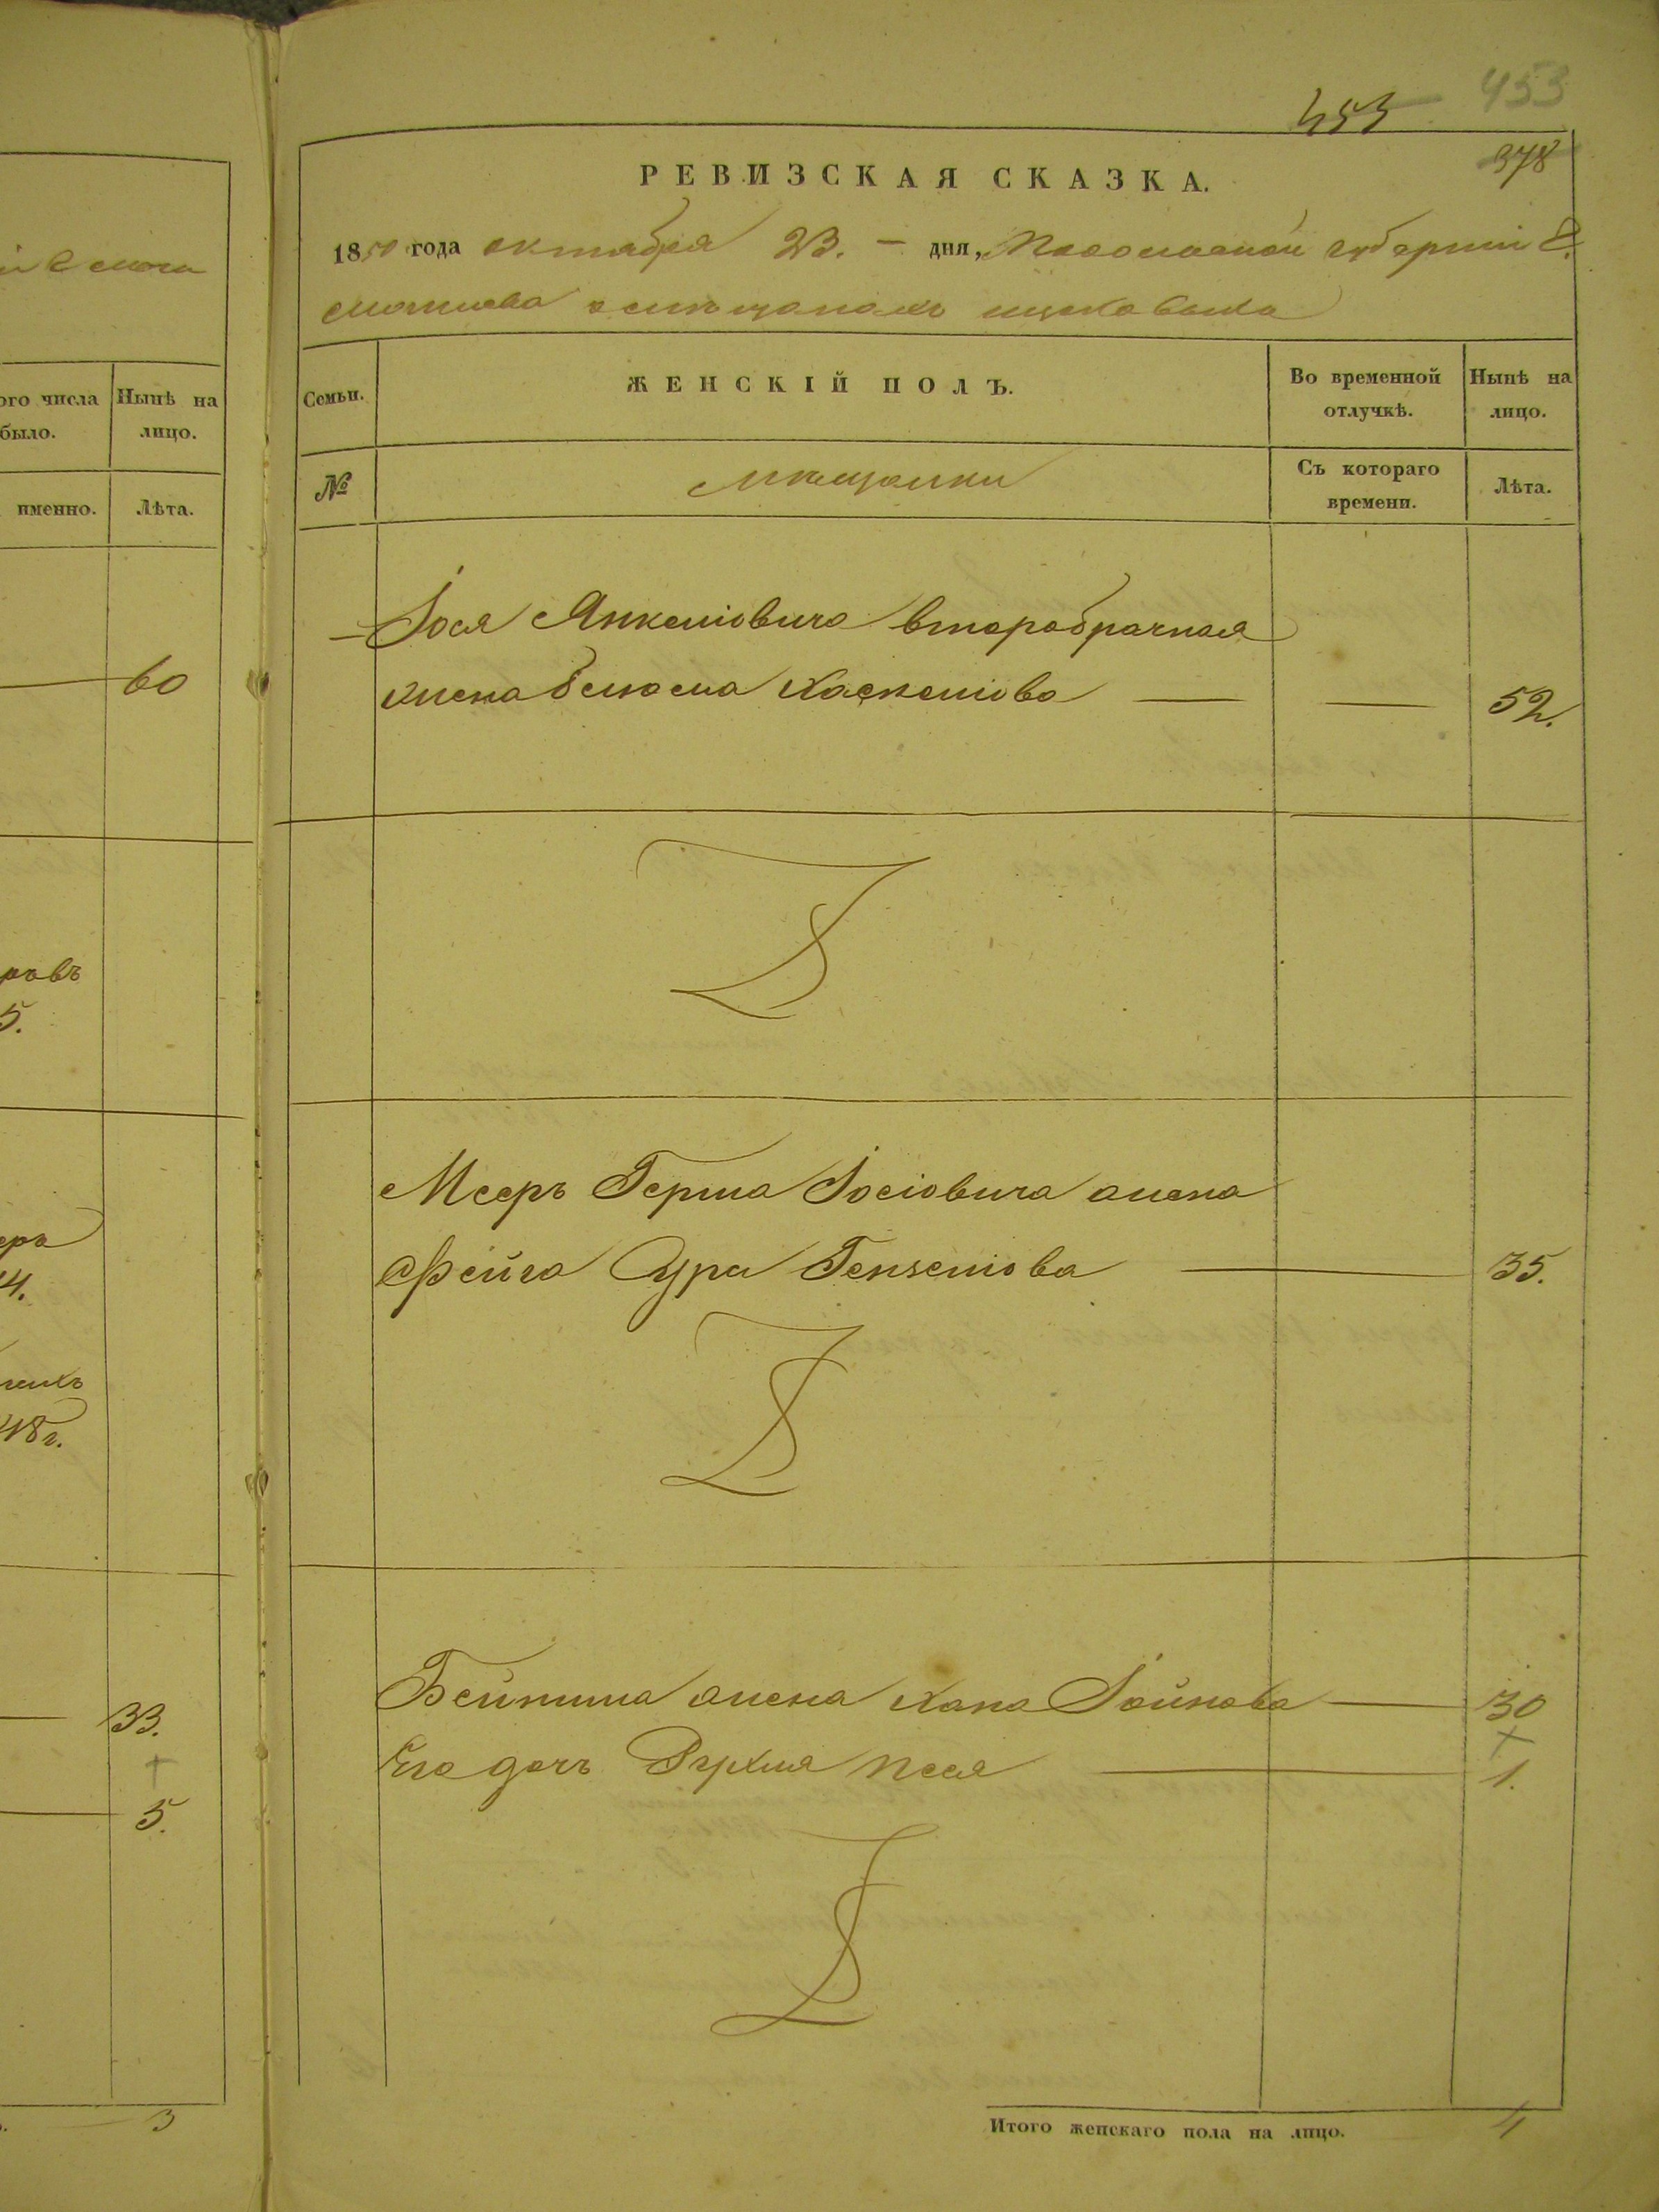 453
453
378
РЕВИЗСКАЯ СКАЗКА.
1850 года октября 23. — дня, Подольской губерніи
Семьи.
ЖЕНСКІЙ ПОЛЪ.
Во временной отлучкѣ.
Нынѣ на лицо.
№
мѣщанки
Съ котораго времени.
Лѣта.
Іося Янкеліовича вторабрачная
жена Хаскеліова — — 52.
Меєръ Герша Іосіовича жена
Фейга Сура Гензеліова — 35.
Бейниша жена Хана Іойнова — 30
Его дочь Рухля Песя — 1.
Итого женскаго пола на лицо. 4
ого числа было.
Нынѣ на лицо.
именно.
Лѣта.
60
5.
4.
48 г.
33.
5.
3